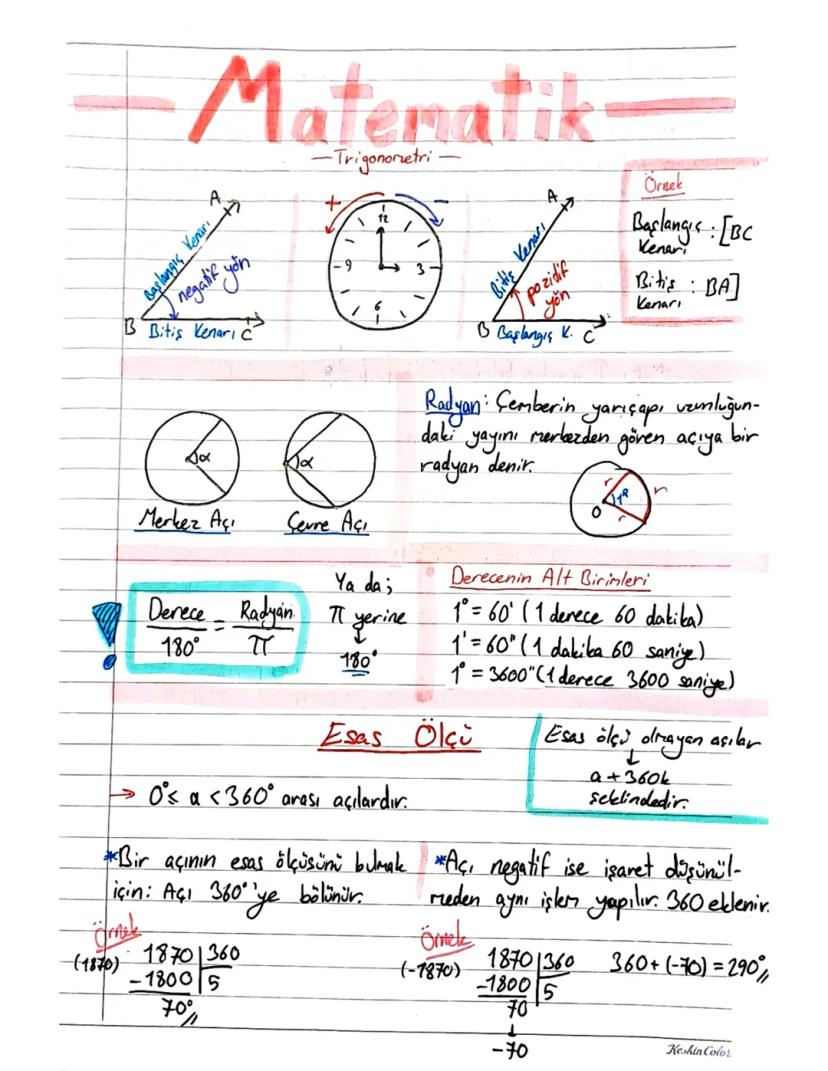 Matematik
— Trigonometri —
A
Başlangıç Kenarı
negatif yön
B Bitiş Kenarı C
+ −
12
9 3
6
A
Bitiş Kenarı
pozitif
yön
B Başlangıç K. C
Örnek
Başlangıç : [BC
Kenarı
Bitiş : BA]
Kenarı
α
Merkez Açı
α
Çevre Açı
Radyan: Çemberin yarıçapı uzunluğun-
daki yayını merkezden gören açıya bir
radyan denir.
r
1ᴿ r
O
r
! Derece = Radyan
180° π
Ya da;
π yerine
↓
180°
Derecenin Alt Birimleri
1° = 60' (1 derece 60 dakika)
1' = 60" (1 dakika 60 saniye)
1° = 3600" (1 derece 3600 saniye)
Esas Ölçü
Esas ölçü olmayan açılar
↓
a + 360k
şeklindedir.
→ 0° ≤ a < 360° arası açılardır.
*Bir açının esas ölçüsünü bulmak
için: Açı 360°'ye bölünür.
*Açı negatif ise işaret düşünül-
meden aynı işlem yapılır. 360 eklenir.
Örnek
(1870) 1870 | 360
-1800 | 5
70°//
Örnek
(-1870) 1870 | 360
-1800 | 5
70
↓
-70
360 + (-70) = 290°//
KeskinColor